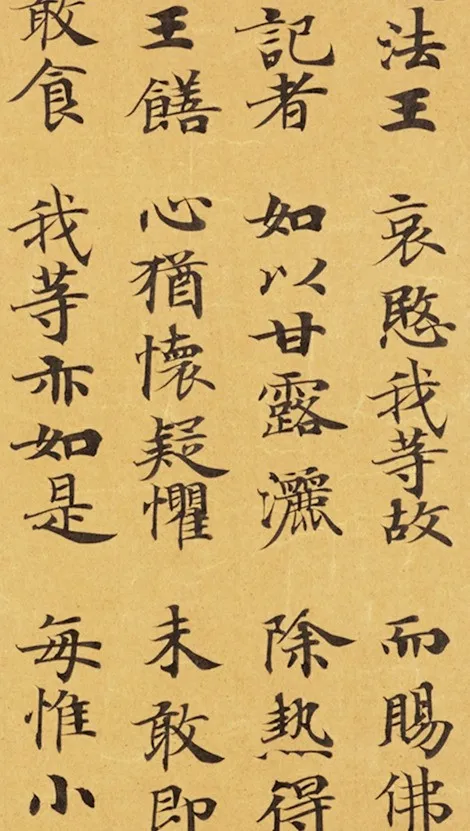 法王 哀愍我等故 而賜佛
記者 如以甘露灑 除熱得
王饍 心猶懷疑懼 未敢即
敢食 我等亦如是 每惟小